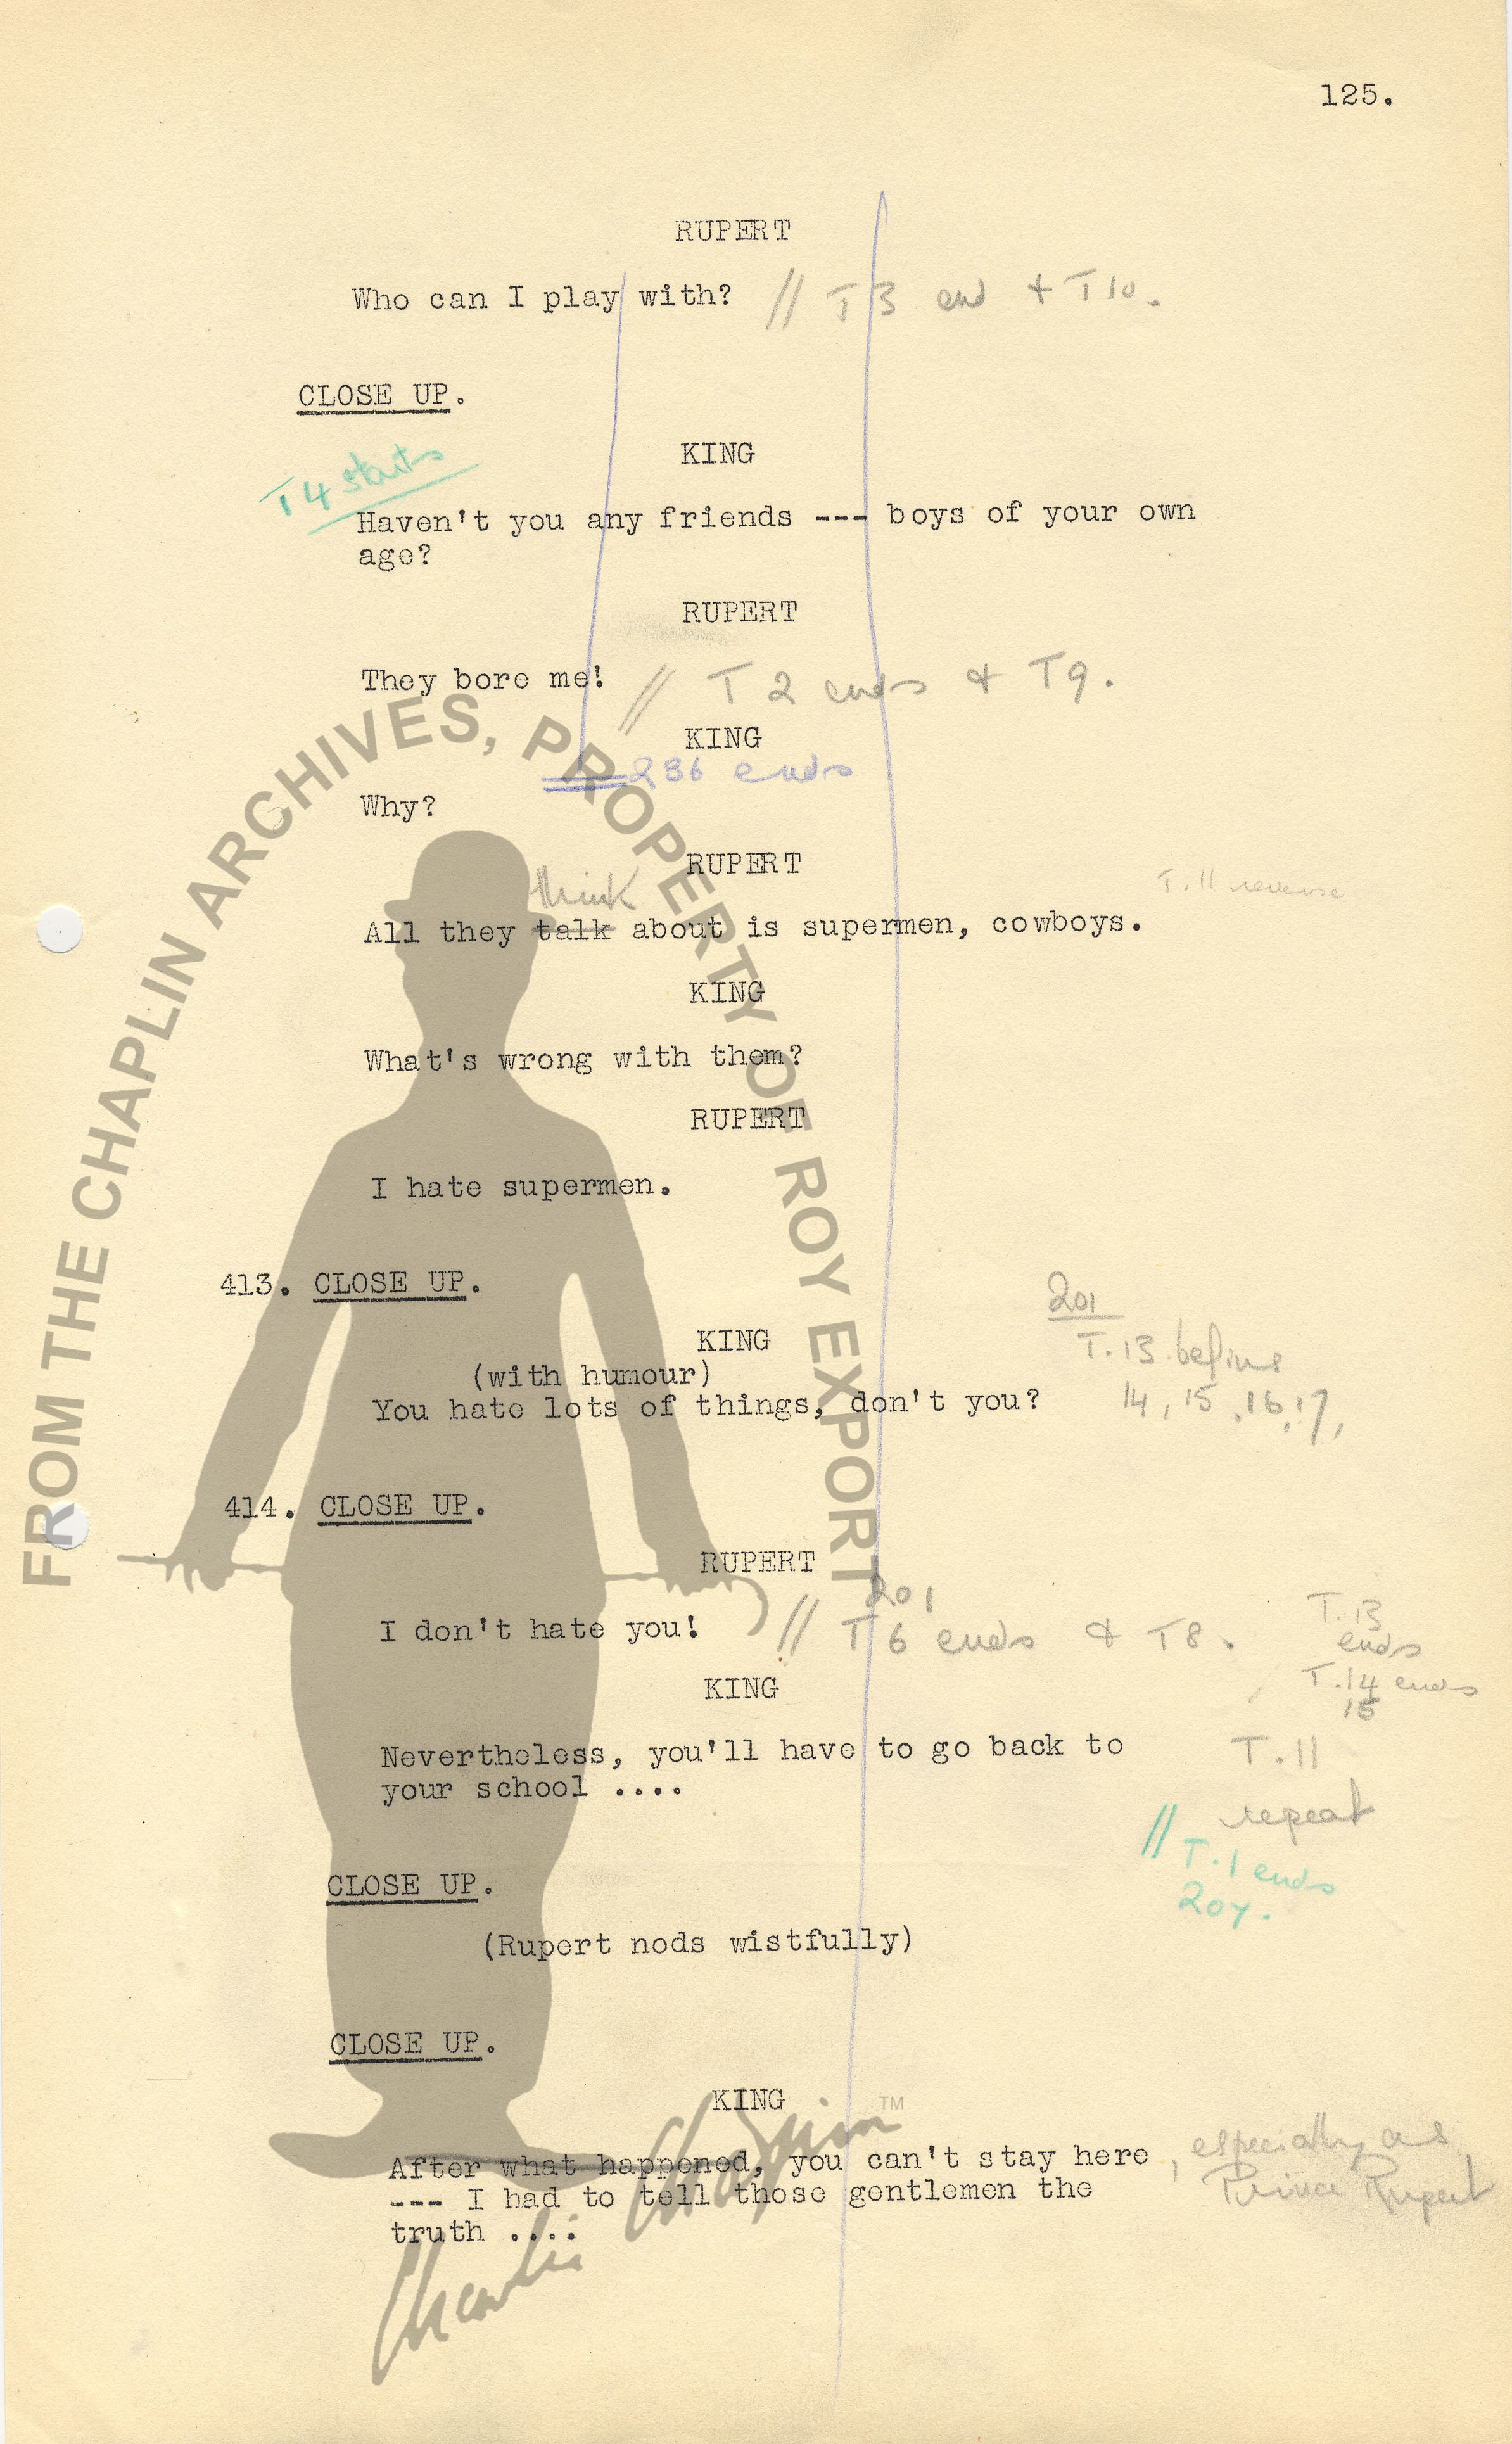 125.
RUPERT
Who can I play with? // T 3 end + T 10.
CLOSE UP.
KING
T 4 starts
Haven't you any friends --- boys of your own
age?
RUPERT
They bore me! // T 2 ends & T 9.
KING
236 ends
Why?
RUPERT
think
T.11 reverse
All they talk about is supermen, cowboys.
KING
What's wrong with them?
RUPERT
I hate supermen.
413. CLOSE UP.
201
KING
T.13 begins
(with humour)
You hate lots of things, don't you?
14, 15, 16, 17,
414. CLOSE UP.
RUPERT
201
I don't hate you! // T 6 ends & T 8.
T.13
ends
T.14 ends
15
KING
Nevertheless, you'll have to go back to
your school ....
T.11
repeat
// T.1 ends
207.
CLOSE UP.
(Rupert nods wistfully)
CLOSE UP.
KING
After what happened, you can't stay here
, especially as
Prince Rupert
--- I had to tell those gentlemen the
truth ....
FROM THE CHAPLIN ARCHIVES, PROPERTY OF ROY EXPORT
Charlie Chaplin TM